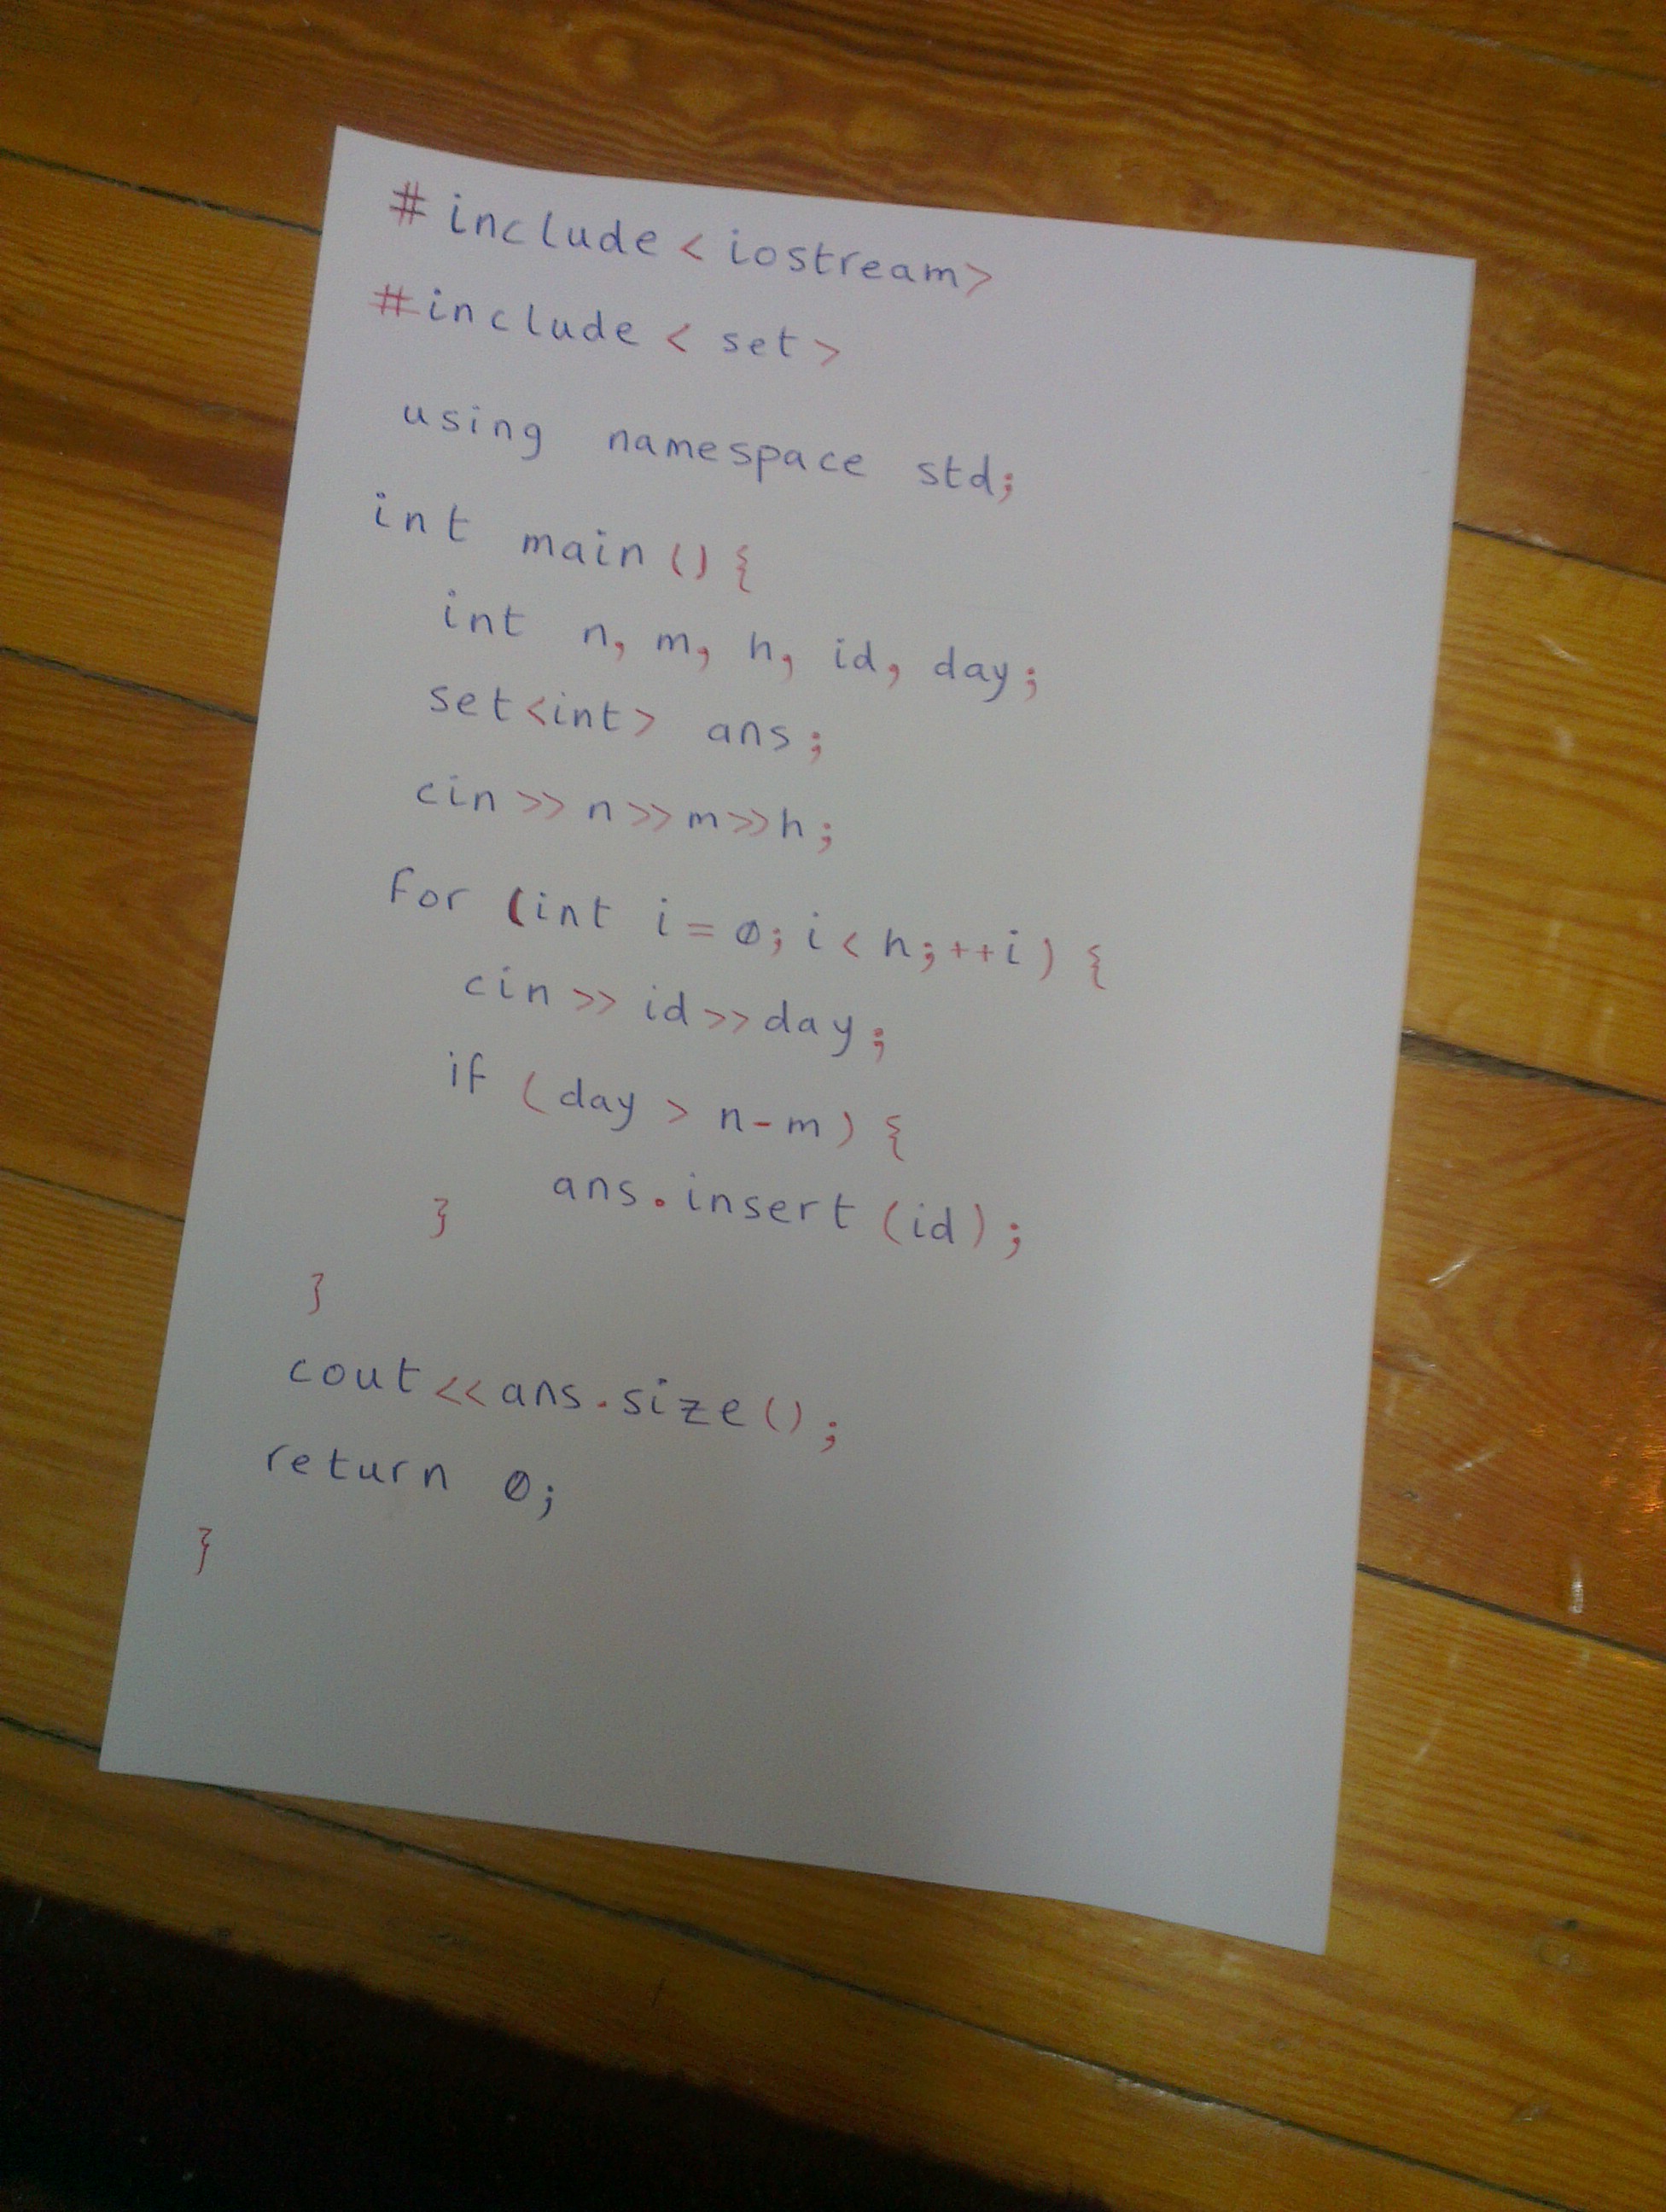 #include <iostream>
#include < set >
using namespace std;
int main () {
int n, m, h, id, day;
set<int> ans;
cin >> n >> m >> h;
for (int i = 0; i < h; ++i) {
cin >> id >> day;
if (day > n-m) {
ans.insert (id);
}
}
cout << ans.size();
return 0;
}